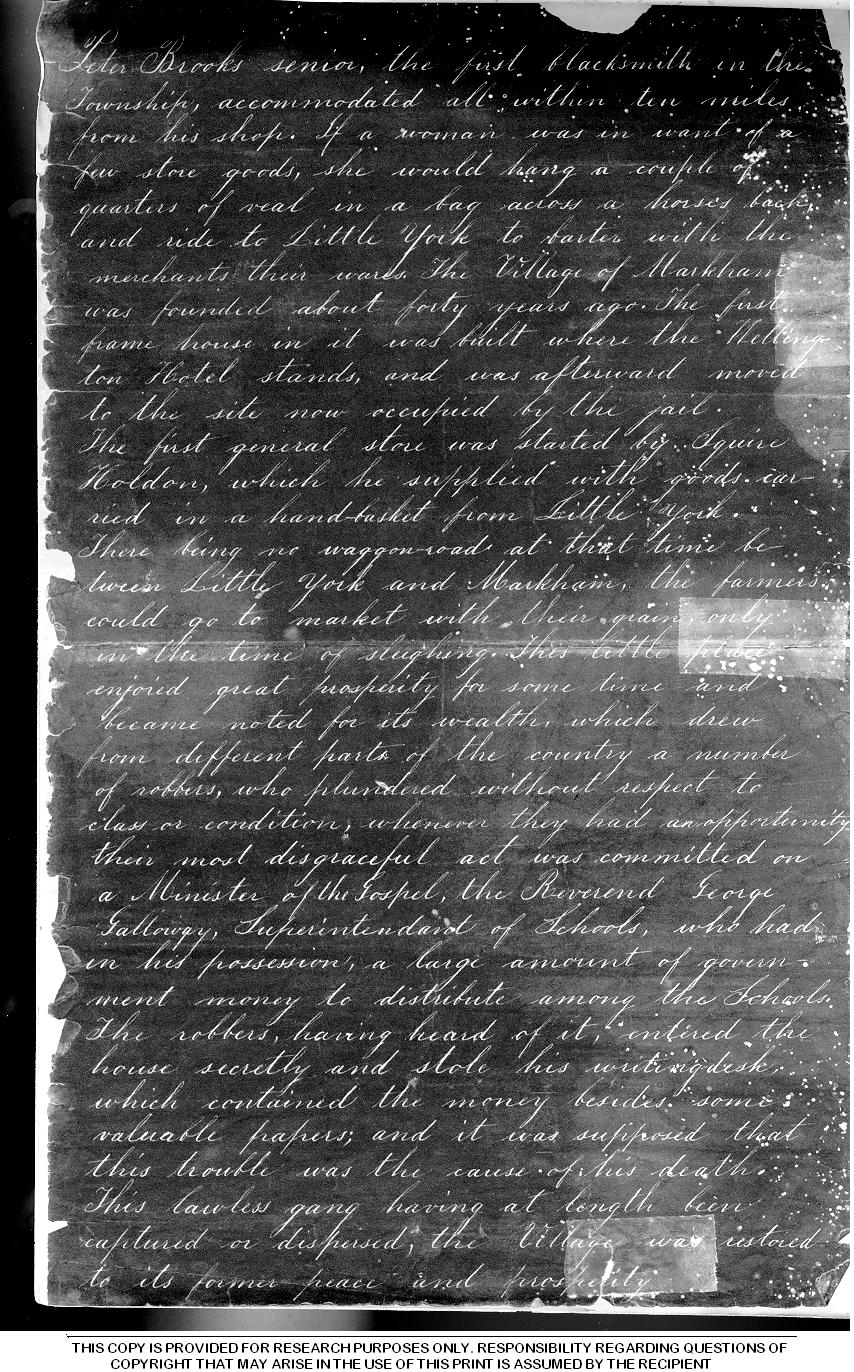 Peter Brooks senior, the first blacksmith in the
Township, accommodated all within ten miles
from his shop. If a woman was in want of a
few store goods, she would hang a couple of
quarters of veal in a bag across a horse's back,
and ride to Little York to barter with the
merchants their wares. The Village of Markham
was founded about forty years ago. The first
frame house in it was built where the Welling-
ton Hotel stands, and was afterward moved
to the site now occupied by the jail.
The first general store was started by Squire
Holdon, which he supplied with goods car-
ried in a hand-basket from Little York.
There being no waggon-road at that time be
tween Little York and Markham, the farmers
could go to market with their grain, only
in the time of sleighing. This little place
enjoied great prosperity for some time and
became noted for its wealth, which drew
from different parts of the country a number
of robbers, who plundered without respect to
class or condition, whenever they had an opportunity
their most disgraceful act was committed on
a Minister of the Gospel, the Reverend George
Gallowgy, Superintendant of Schools, who had
in his possession, a large amount of govern-
ment money to distribute among the Schools.
The robbers, having heard of it, entered the
house secretly and stole his writingdesk,
which contained the money besides some
valuable papers; and it was supposed that
this trouble was the cause of his death.
This lawless gang having at length been
captured or dispersed, the Village was restored
to its former peace and prosperity
THIS COPY IS PROVIDED FOR RESEARCH PURPOSES ONLY. RESPONSIBILITY REGARDING QUESTIONS OF
COPYRIGHT THAT MAY ARISE IN THE USE OF THIS PRINT IS ASSUMED BY THE RECIPIENT